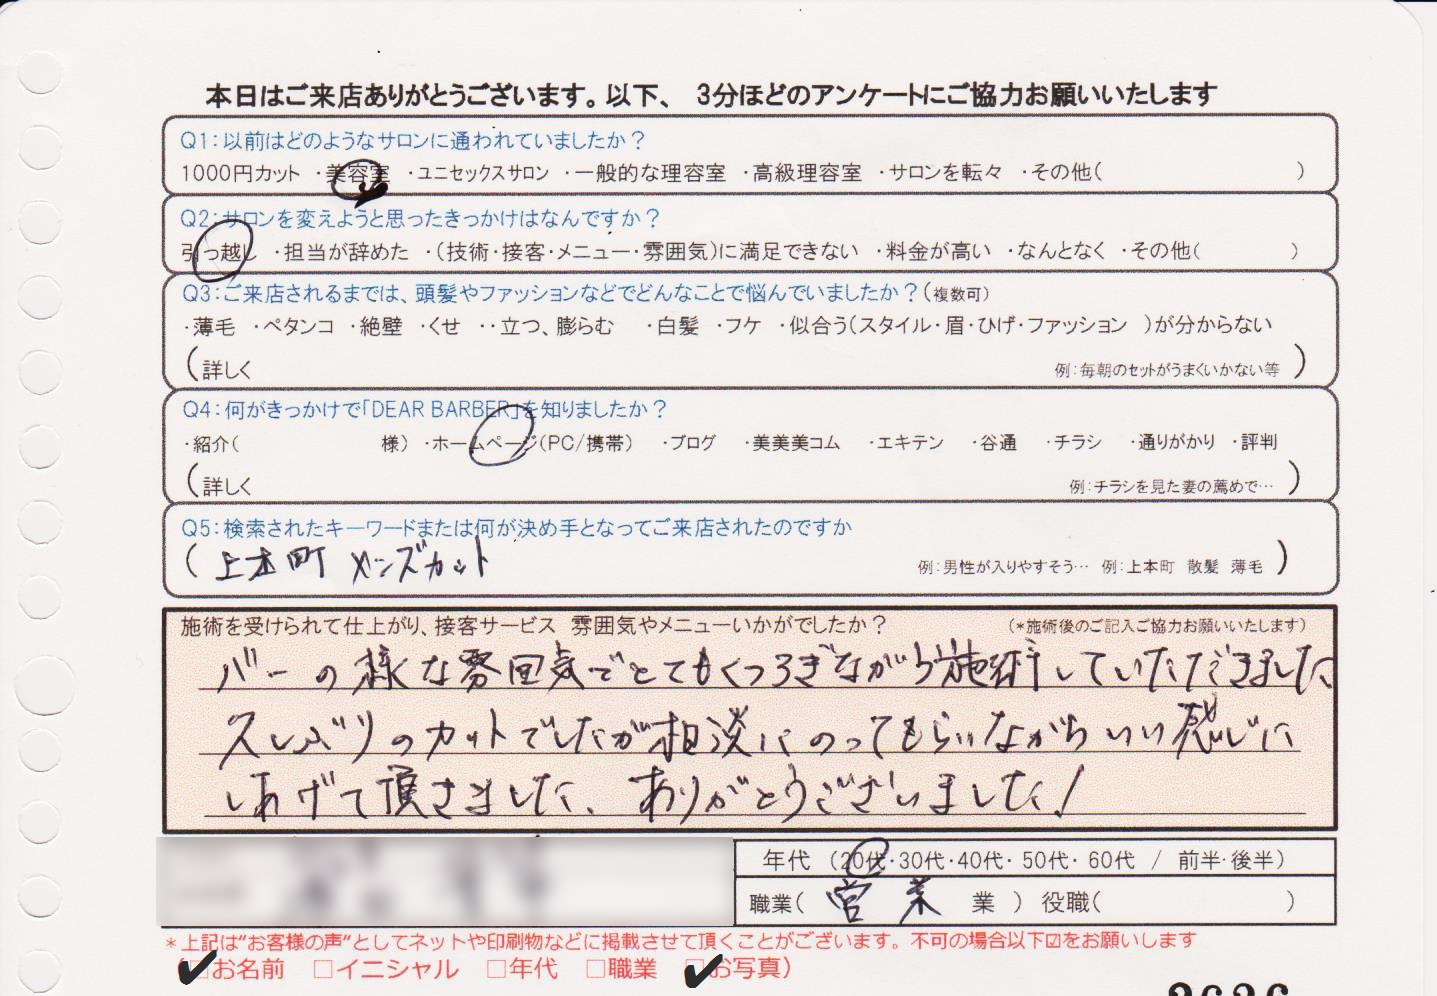 本日はご来店ありがとうございます。以下、 3分ほどのアンケートにご協力お願いいたします
Q1:以前はどのようなサロンに通われていましたか？
1000円カット ・美容室 ・ユニセックスサロン ・一般的な理容室 ・高級理容室 ・サロンを転々 ・その他( )
Q2:サロンを変えようと思ったきっかけはなんですか？
引っ越し ・担当が辞めた ・(技術・接客・メニュー・雰囲気)に満足できない ・料金が高い ・なんとなく ・その他( )
Q3:ご来店されるまでは、頭髪やファッションなどでどんなことで悩んでいましたか？(複数可)
・薄毛 ・ペタンコ ・絶壁 ・くせ ・・立つ、膨らむ ・白髪 ・フケ ・似合う(スタイル・眉・ひげ・ファッション )が分からない
(詳しく 例:毎朝のセットがうまくいかない等 )
Q4:何がきっかけで「DEAR BARBER」を知りましたか？
・紹介( 様) ・ホームページ(PC/携帯) ・ブログ ・美美美コム ・エキテン ・谷通 ・チラシ ・通りがかり ・評判
(詳しく 例:チラシを見た妻の薦めで… )
Q5:検索されたキーワードまたは何が決め手となってご来店されたのですか
( 上本町 メンズカット 例:男性が入りやすそう… 例:上本町 散髪 薄毛 )
施術を受けられて仕上がり、接客サービス 雰囲気やメニューいかがでしたか？ (*施術後のご記入ご協力お願いいたします)
バーの様な雰囲気でとてもくつろぎながら施術していただきました
スレべツのカットでしたが相談にのってもらいながらいい感じに
しあげて頂きました、ありがとうございました!
年代 (20代・30代・40代・ 50代・ 60代 / 前半・後半)
職業( 営業 業 ) 役職( )
*上記は“お客様の声”としてネットや印刷物などに掲載させて頂くことがございます。不可の場合以下☑をお願いします
(□お名前 □イニシャル □年代 □職業 □お写真)